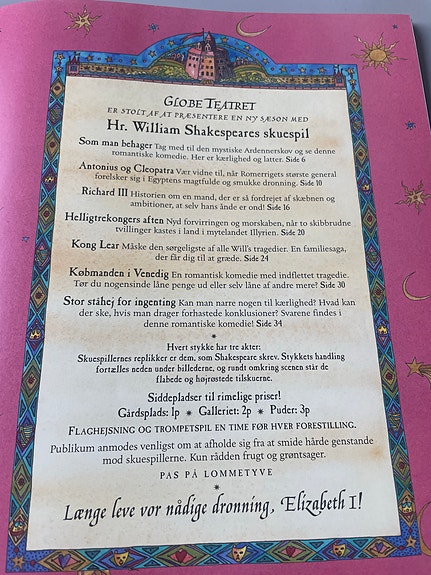 GLOBE TEATRET
ER STOLT AF AT PRÆSENTERE EN NY SÆSON MED
Hr. William Shakespeares skuespil
Som man behager Tag med til den mystiske Ardennerskov og se denne
romantiske komedie. Her er kærlighed og latter. Side 6
Antonius og Cleopatra Vær vidne til, når Romerrigets største general
forelsker sig i Egyptens magtfulde og smukke dronning. Side 10
Richard III Historien om en mand, der er så fordrejet af skæbnen og
ambitioner, at selv hans ånde er ond! Side 16
Helligtrekongers aften Nyd forvirringen og morskaben, når to skibbrudne
tvillinger kastes i land i mytelandet Illyrien. Side 20
Kong Lear Måske den sørgeligste af alle Will's tragedier. En familiesaga,
der får dig til at græde. Side 24
Købmanden i Venedig En romantisk komedie med indflettet tragedie.
Tør du nogensinde låne penge ud eller selv låne af andre mere? Side 30
Stor ståhej for ingenting Kan man narre nogen til kærlighed? Hvad kan
der ske, hvis man drager forhastede konklusioner? Svarene findes i
denne romantiske komedie! Side 34
Hvert stykke har tre akter:
Skuespillernes replikker er dem, som Shakespeare skrev. Stykkets handling
fortælles neden under billederne, og rundt omkring scenen står de
flabede og højrøstede tilskuerne.
Siddepladser til rimelige priser!
Gårdsplads: 1p * Galleriet: 2p * Puder: 3p
FLAGHEJSNING OG TROMPETSPIL EN TIME FØR HVER FORESTILLING.
Publikum anmodes venligst om at afholde sig fra at smide hårde genstande
mod skuespillerne. Kun rådden frugt og grøntsager.
PAS PÅ LOMMETYVE
Længe leve vor nådige dronning, Elizabeth I!